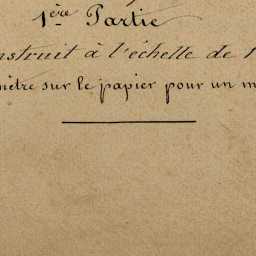 1ère Partie
nstruit à l'échelle de 1
mètre sur le papier pour un m